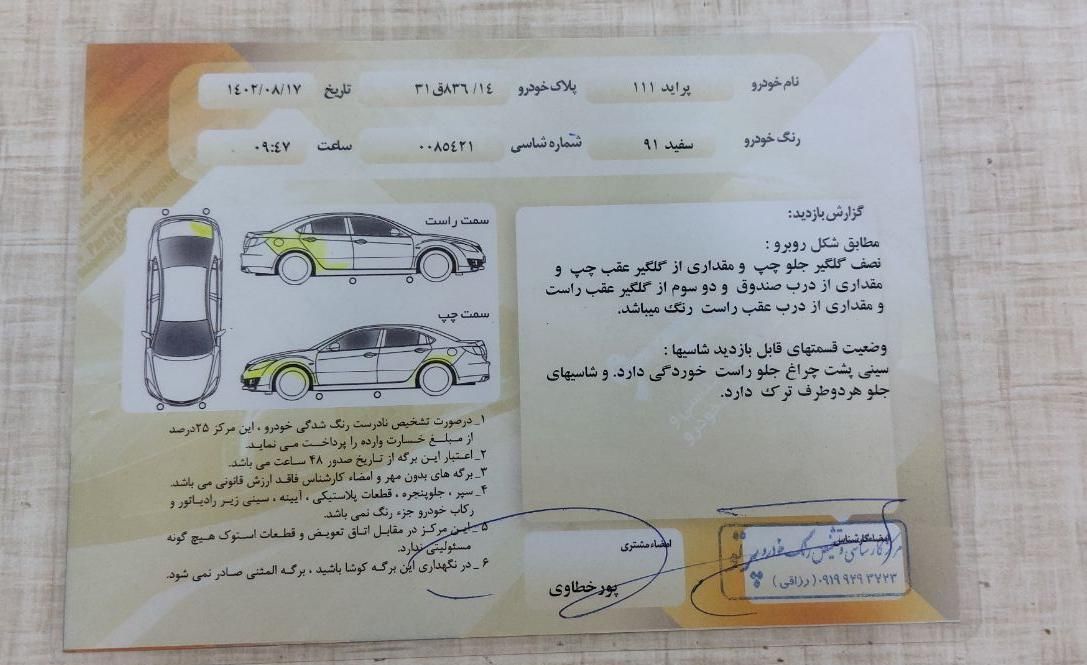 نام خودرو پراید ۱۱۱ پلاک خودرو ۱۴/ ۸۳۶ق۳۱ تاریخ ۱۴۰۲/۰۸/۱۷
رنگ خودرو سفید ۹۱ شماره شاسی ۰۰۸۵۴۲۱ ساعت ۰۹:۴۷
گزارش بازدید:
مطابق شکل روبرو :
نصف گلگیر جلو چپ و مقداری از گلگیر عقب چپ و
مقداری از درب صندوق و دو سوم از گلگیر عقب راست
و مقداری از درب عقب راست رنگ میباشد.
وضعیت قسمتهای قابل بازدید شاسیها :
سینی پشت چراغ جلو راست خوردگی دارد. و شاسیهای
جلو هردوطرف ترک دارد.
سمت راست
سمت چپ
۱_درصورت تشخیص نادرست رنگ شدگی خودرو ، این مرکز ۲۵درصد
از مبلغ خسارت وارده را پرداخت می نماید.
۲_اعتبار این برگه از تاریخ صدور ۴۸ ساعت می باشد.
۳_برگه های بدون مهر و امضاء کارشناس فاقد ارزش قانونی می باشد.
۴_ سپر ، جلوپنجره ، قطعات پلاستیکی ، آیینه ، سینی زیر رادیاتور و
رکاب خودرو جزء رنگ نمی باشد.
۵_این مرکز در مقابل اتاق تعویض و قطعات استوک هیچ گونه
مسئولیتی ندارد.
۶_در نگهداری این برگه کوشا باشید ، برگه المثنی صادر نمی شود.
امضاء کارشناس
مرکز کارشناسی و تشخیص رنگ خودرو
۰۹۱۹ ۹۲۹ ۳۲۲۳ (رزاقی)
امضاء مشتری
پورخطاوی